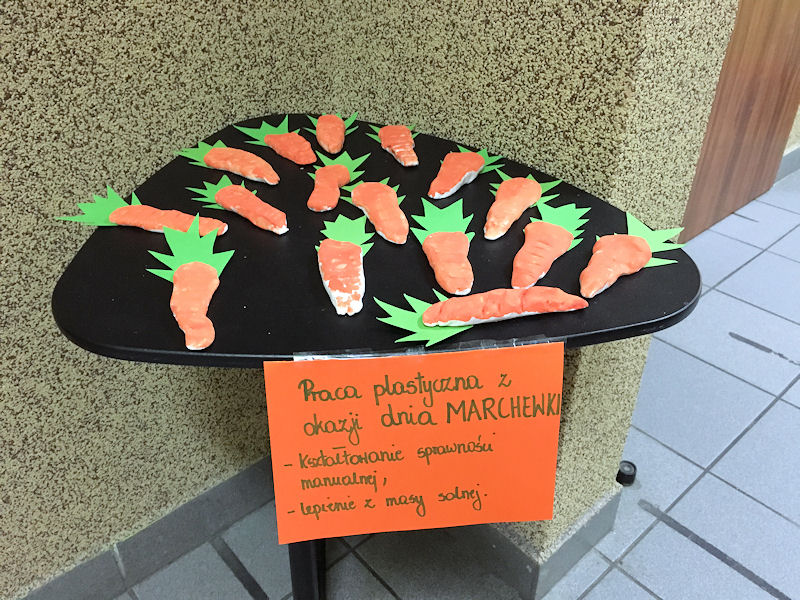 Praca plastyczna z
okazji dnia MARCHEWKI
- Kształtowanie sprawności
manualnej,
- lepienie z masy solnej.